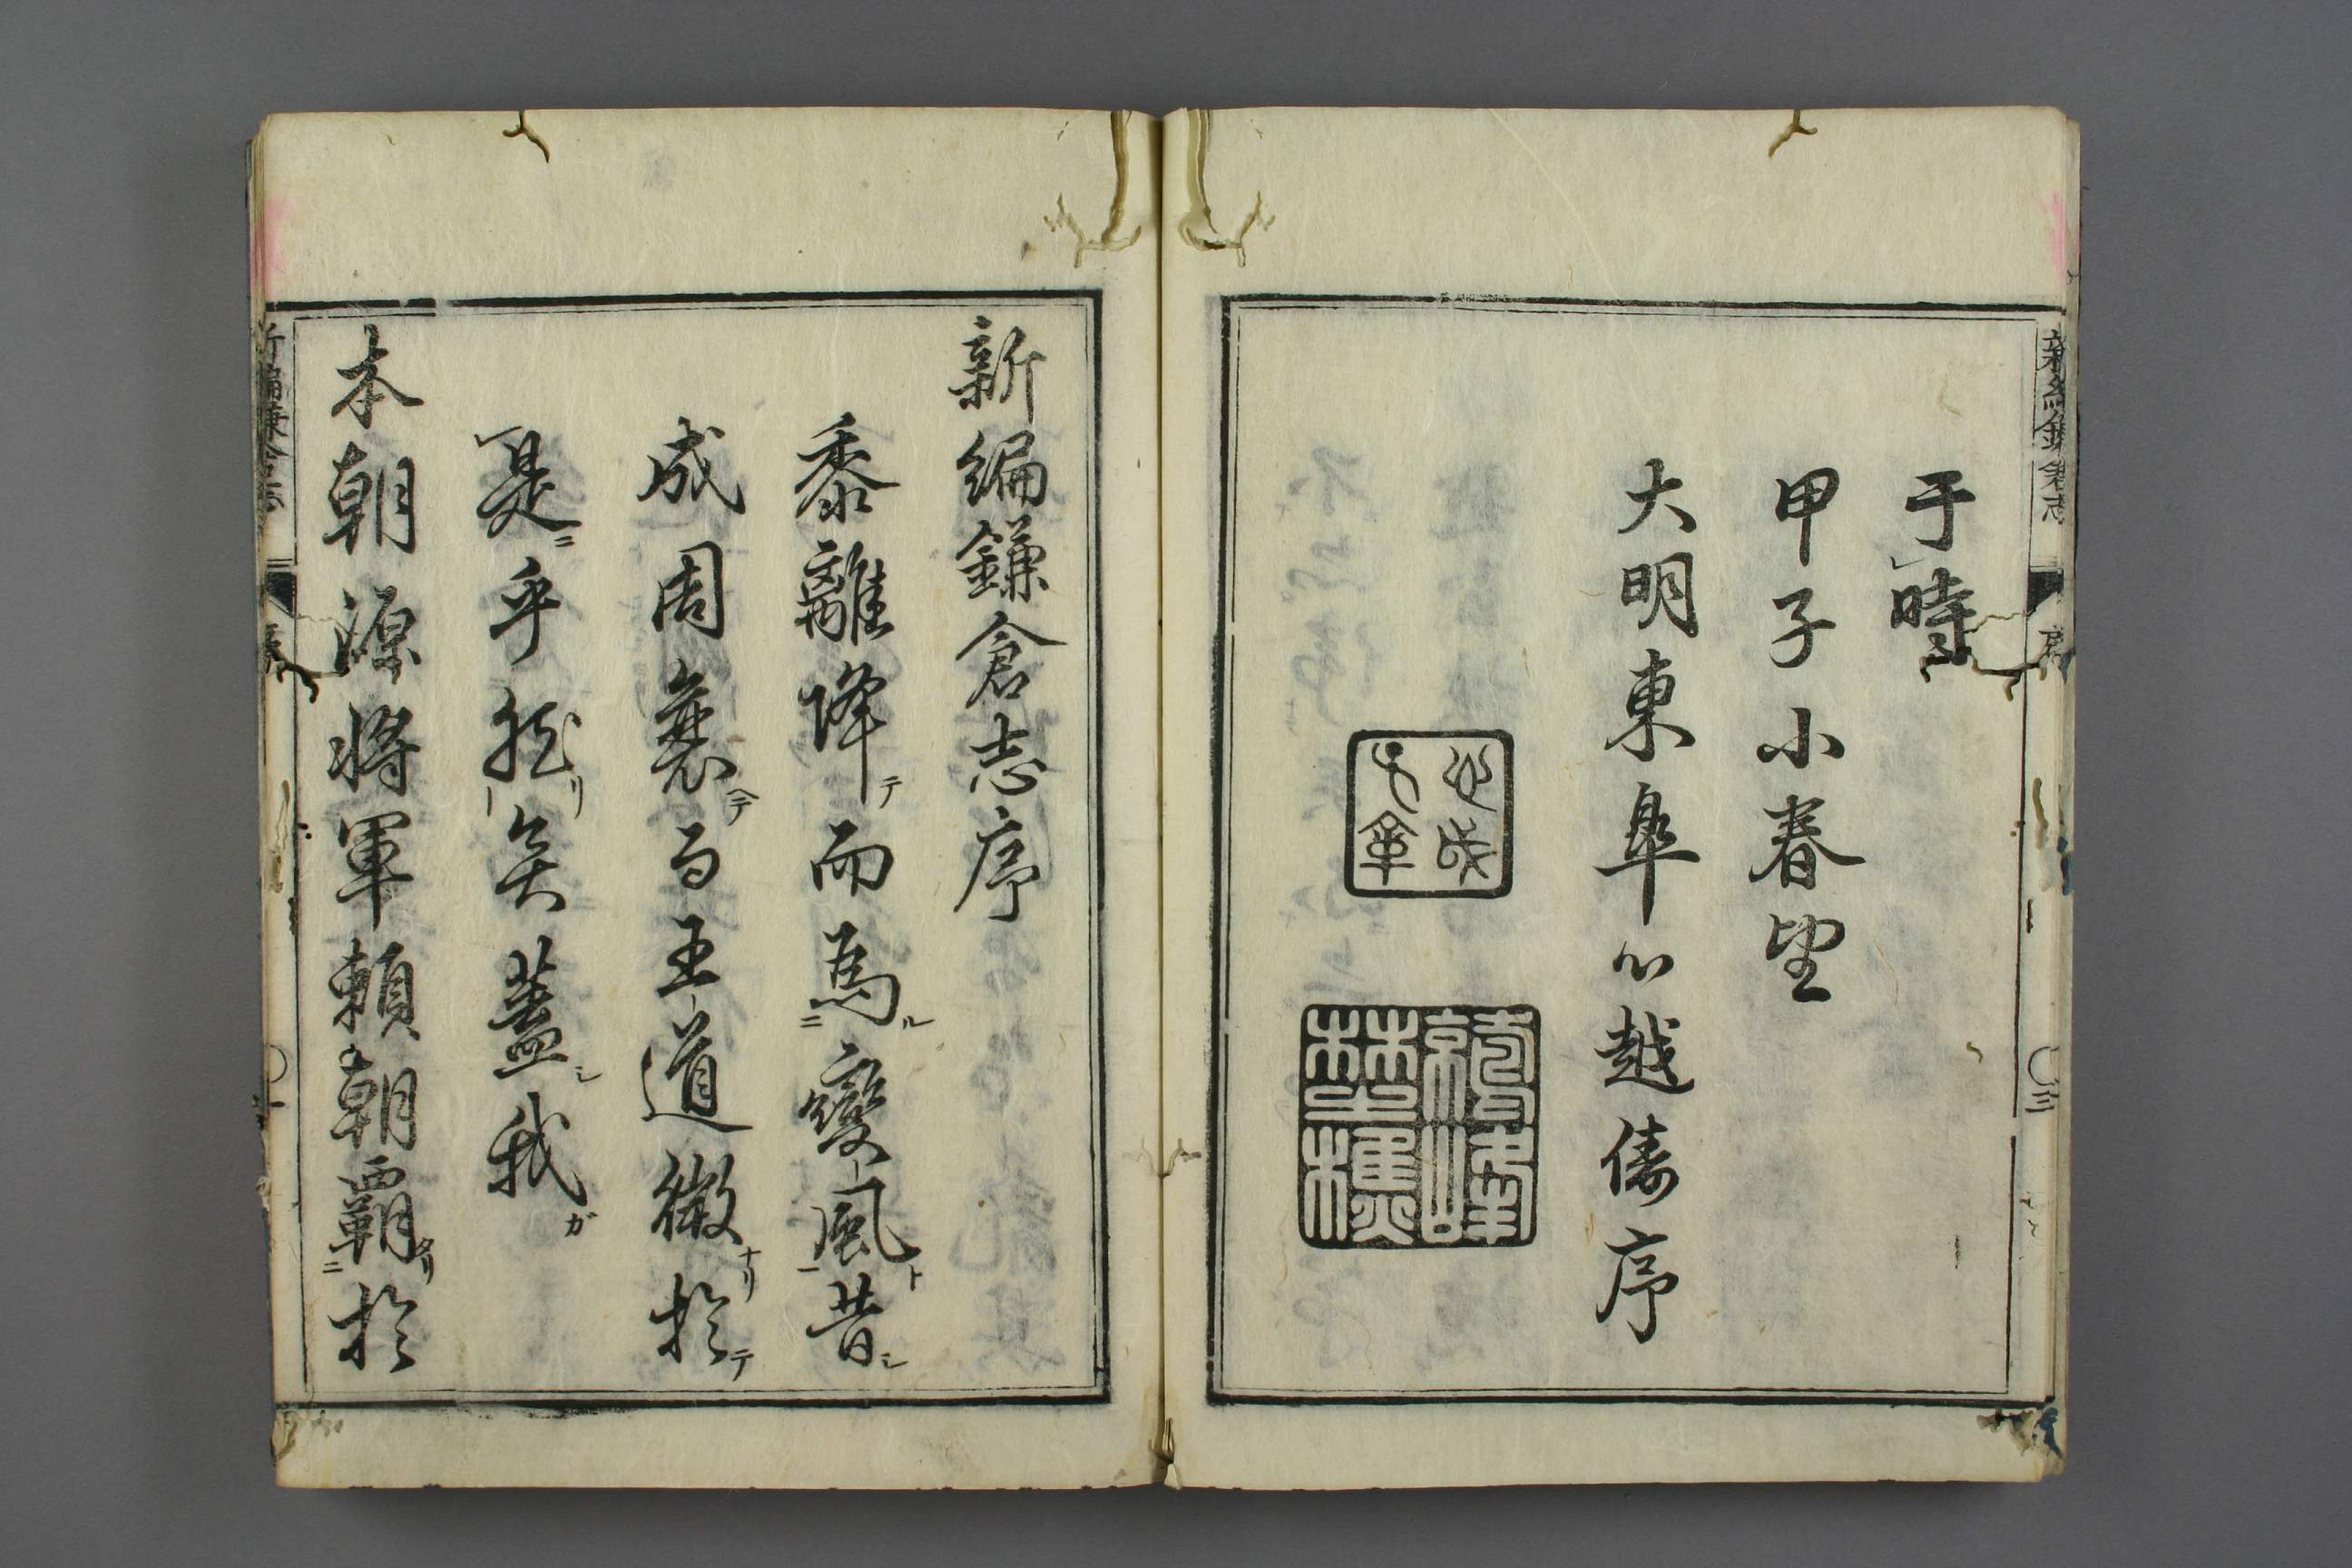 新編鎌倉志　序　〇三
于時
甲子小春望
大明東皐心越儔序
新編鎌倉志序
黍離降テ而為ル二變風ト一昔シ
成周衰ヘテ而王道微ナリ於テ
是ニ乎然リ矣蓋シ我ガ
本朝源將軍頼朝覇タリ二於
新編鎌倉志　序　〇一